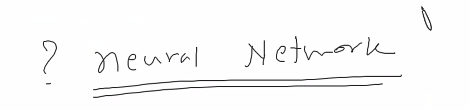 ? neural Network